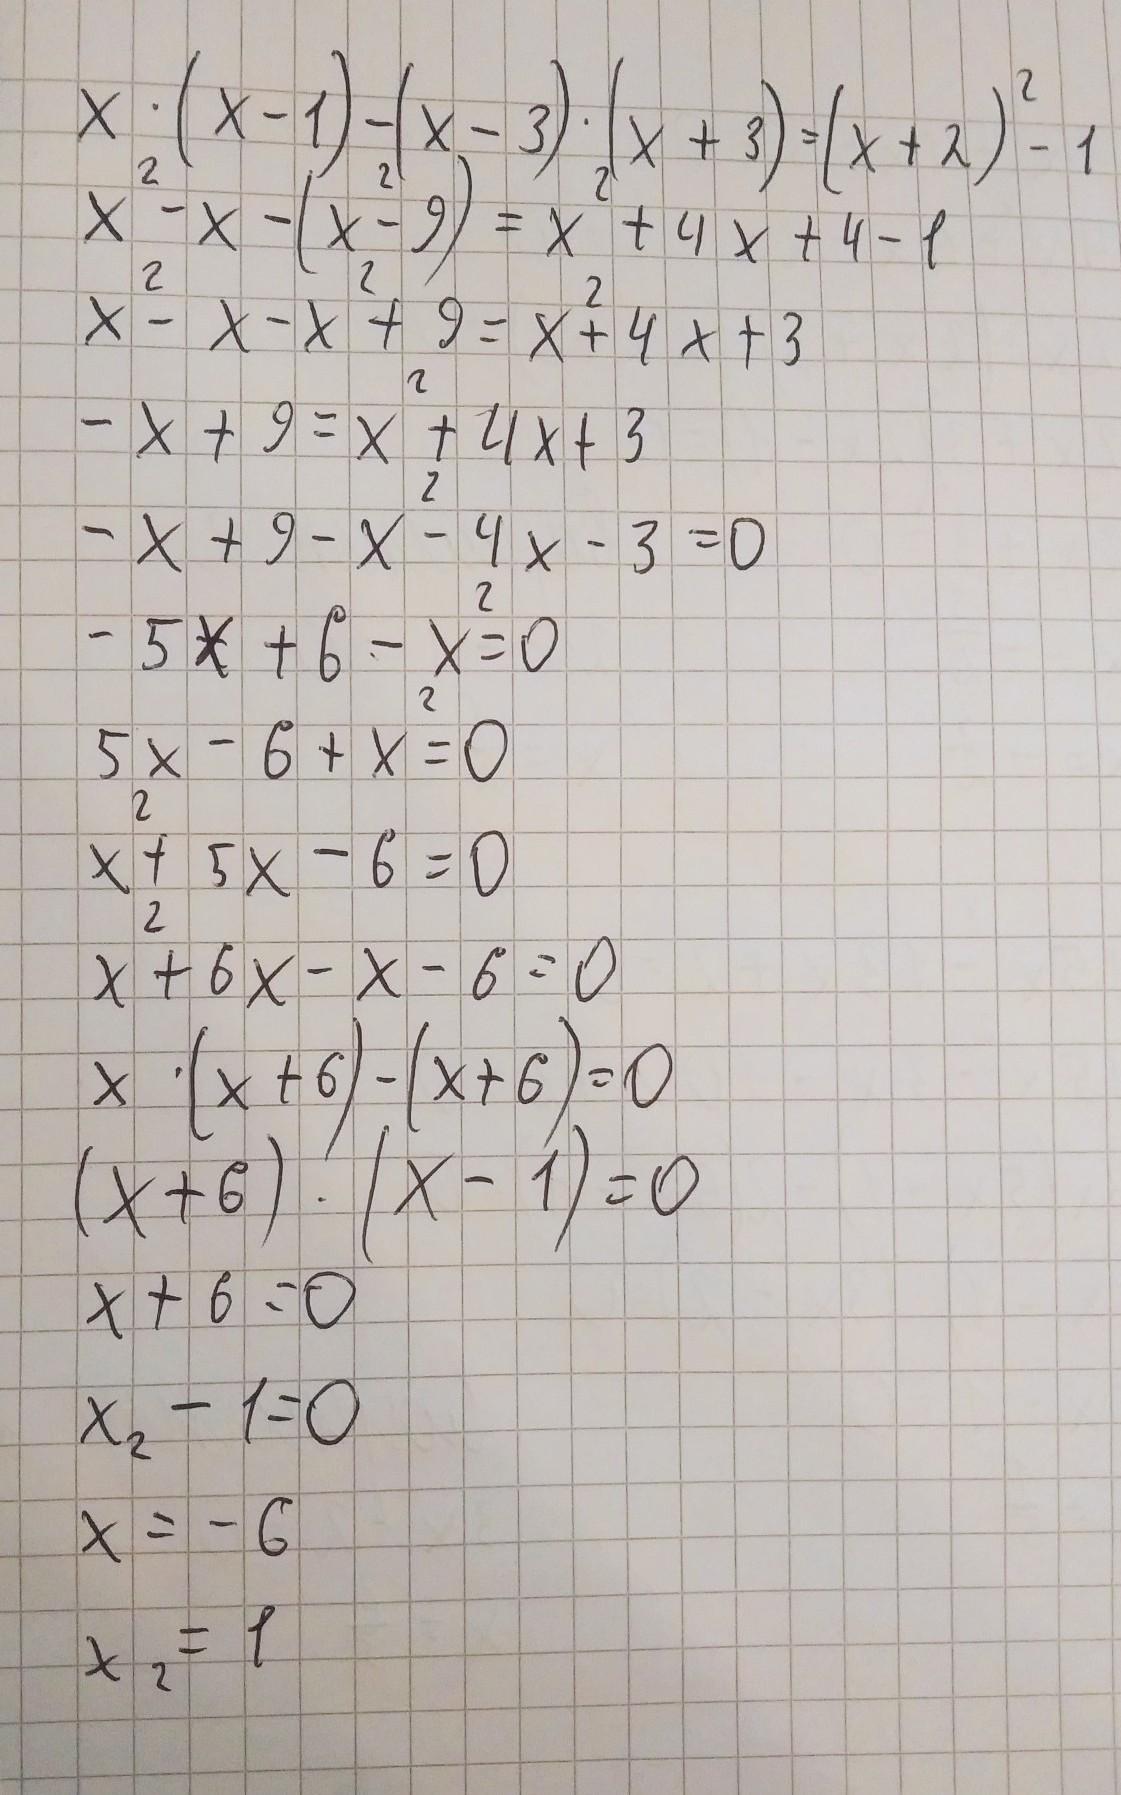 x · (x - 1) - (x - 3) · (x + 3) = (x + 2)² - 1
x² - x - (x² - 9) = x² + 4x + 4 - 1
x² - x - x² + 9 = x² + 4x + 3
- x + 9 = x² + 4x + 3
- x + 9 - x² - 4x - 3 = 0
- 5x + 6 - x² = 0
5x - 6 + x² = 0
x² + 5x - 6 = 0
x² + 6x - x - 6 = 0
x · (x + 6) - (x + 6) = 0
(x + 6) · (x - 1) = 0
x + 6 = 0
x₂ - 1 = 0
x = - 6
x₂ = 1